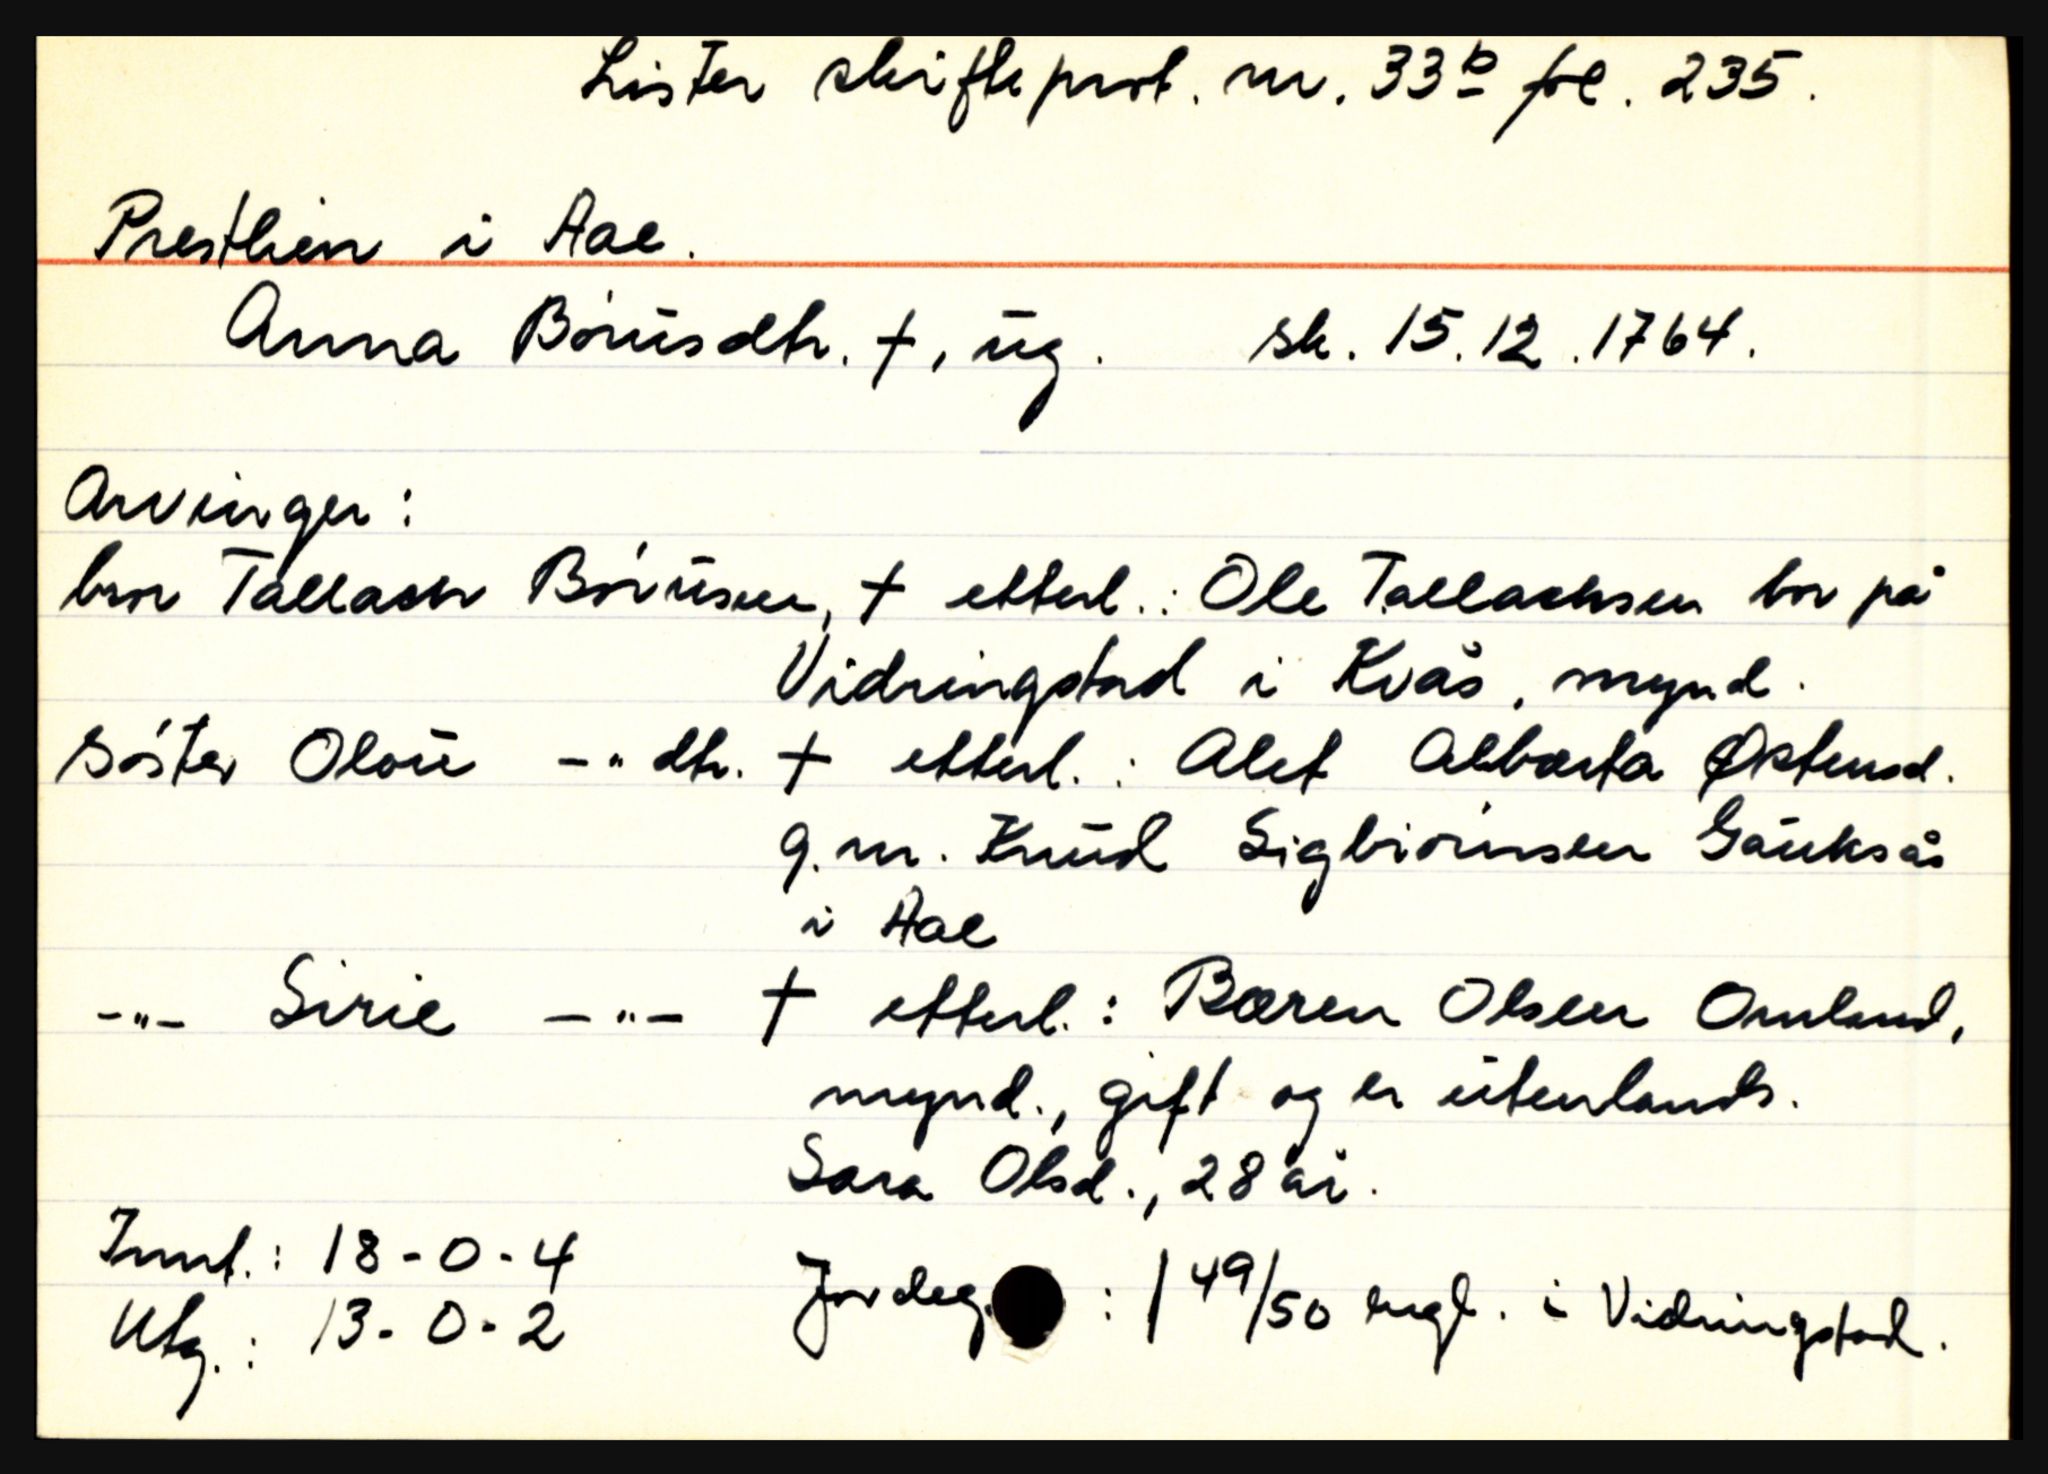 Lister skifteprot. nr. 33b fol. 235.
Prestlien i Aal.
Anna Bórüsdtr. †, üg. sk. 15.12.1764.
Arvinger:
bror Tallach Bórüsen, † etterl.: Ole Tallachsen bor på
Vidringstad i Kvås, mynd.
Sóster Oloü -"- dtr. † etterl.: Alet Albarta Østensd.
g.m. Knüd Sigbiórnsen Gaüksås
i Aal
-"- Sirie -"- † etterl.: Børen Olsen Omland,
mynd., gift og er ütenlands.
Sara Olsd., 28 år.
Innt.: 18-0-4
Utg.: 13-0-2
Jordeg. : 1 49/50 engl. i Vidringstad.